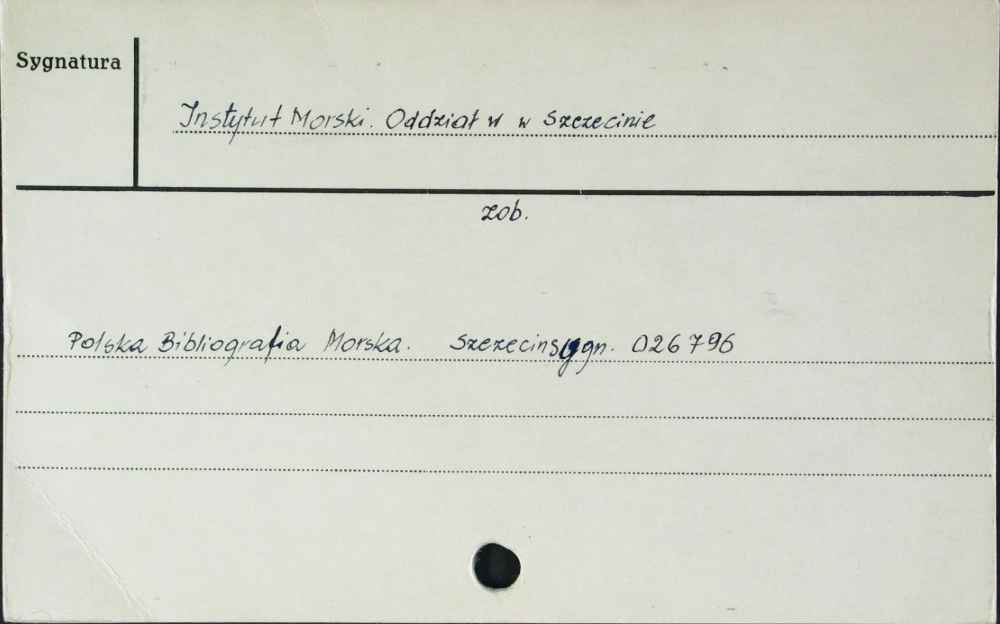 Sygnatura
Instytut Morski. Oddział w w Szczecinie
zob.
Polska Bibliografia Morska. Szczecin sygn. 026796